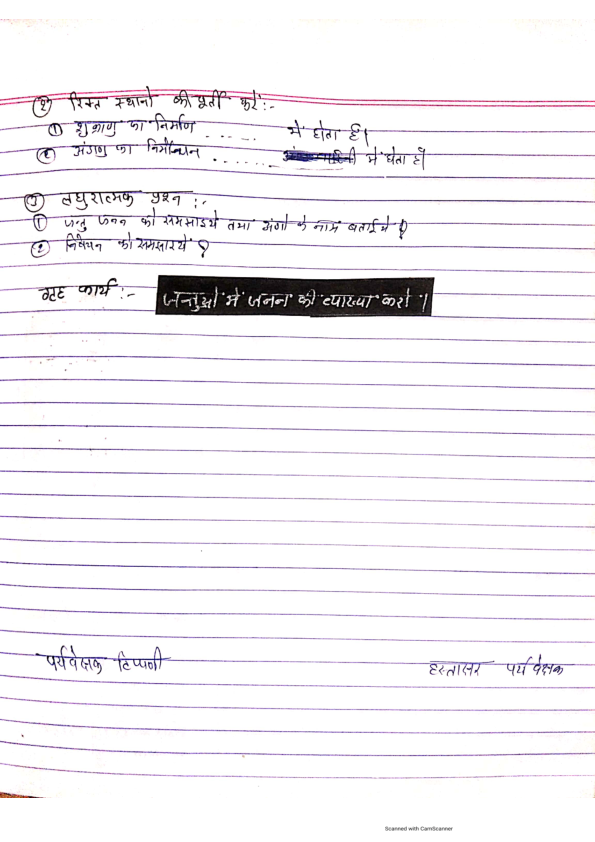 (२) रिक्त स्थानो की पूर्ती करें:-
① शुक्राणु का निर्माण ..... मे होता है।
② अंडाणु का निर्माण ....... मे होता है
(3) लघुरात्मक प्रश्न :-
① जन्तु जनन को समझाइये तथा अंगो के नाम बताईये ?
② निषेचन को समझाइये ?
गृह कार्य :- जन्तुओ मे जनन की व्याख्या करो ।
पर्यवेक्षक टिप्पणी
हस्ताक्षर पर्यवेक्षक
Scanned with CamScanner